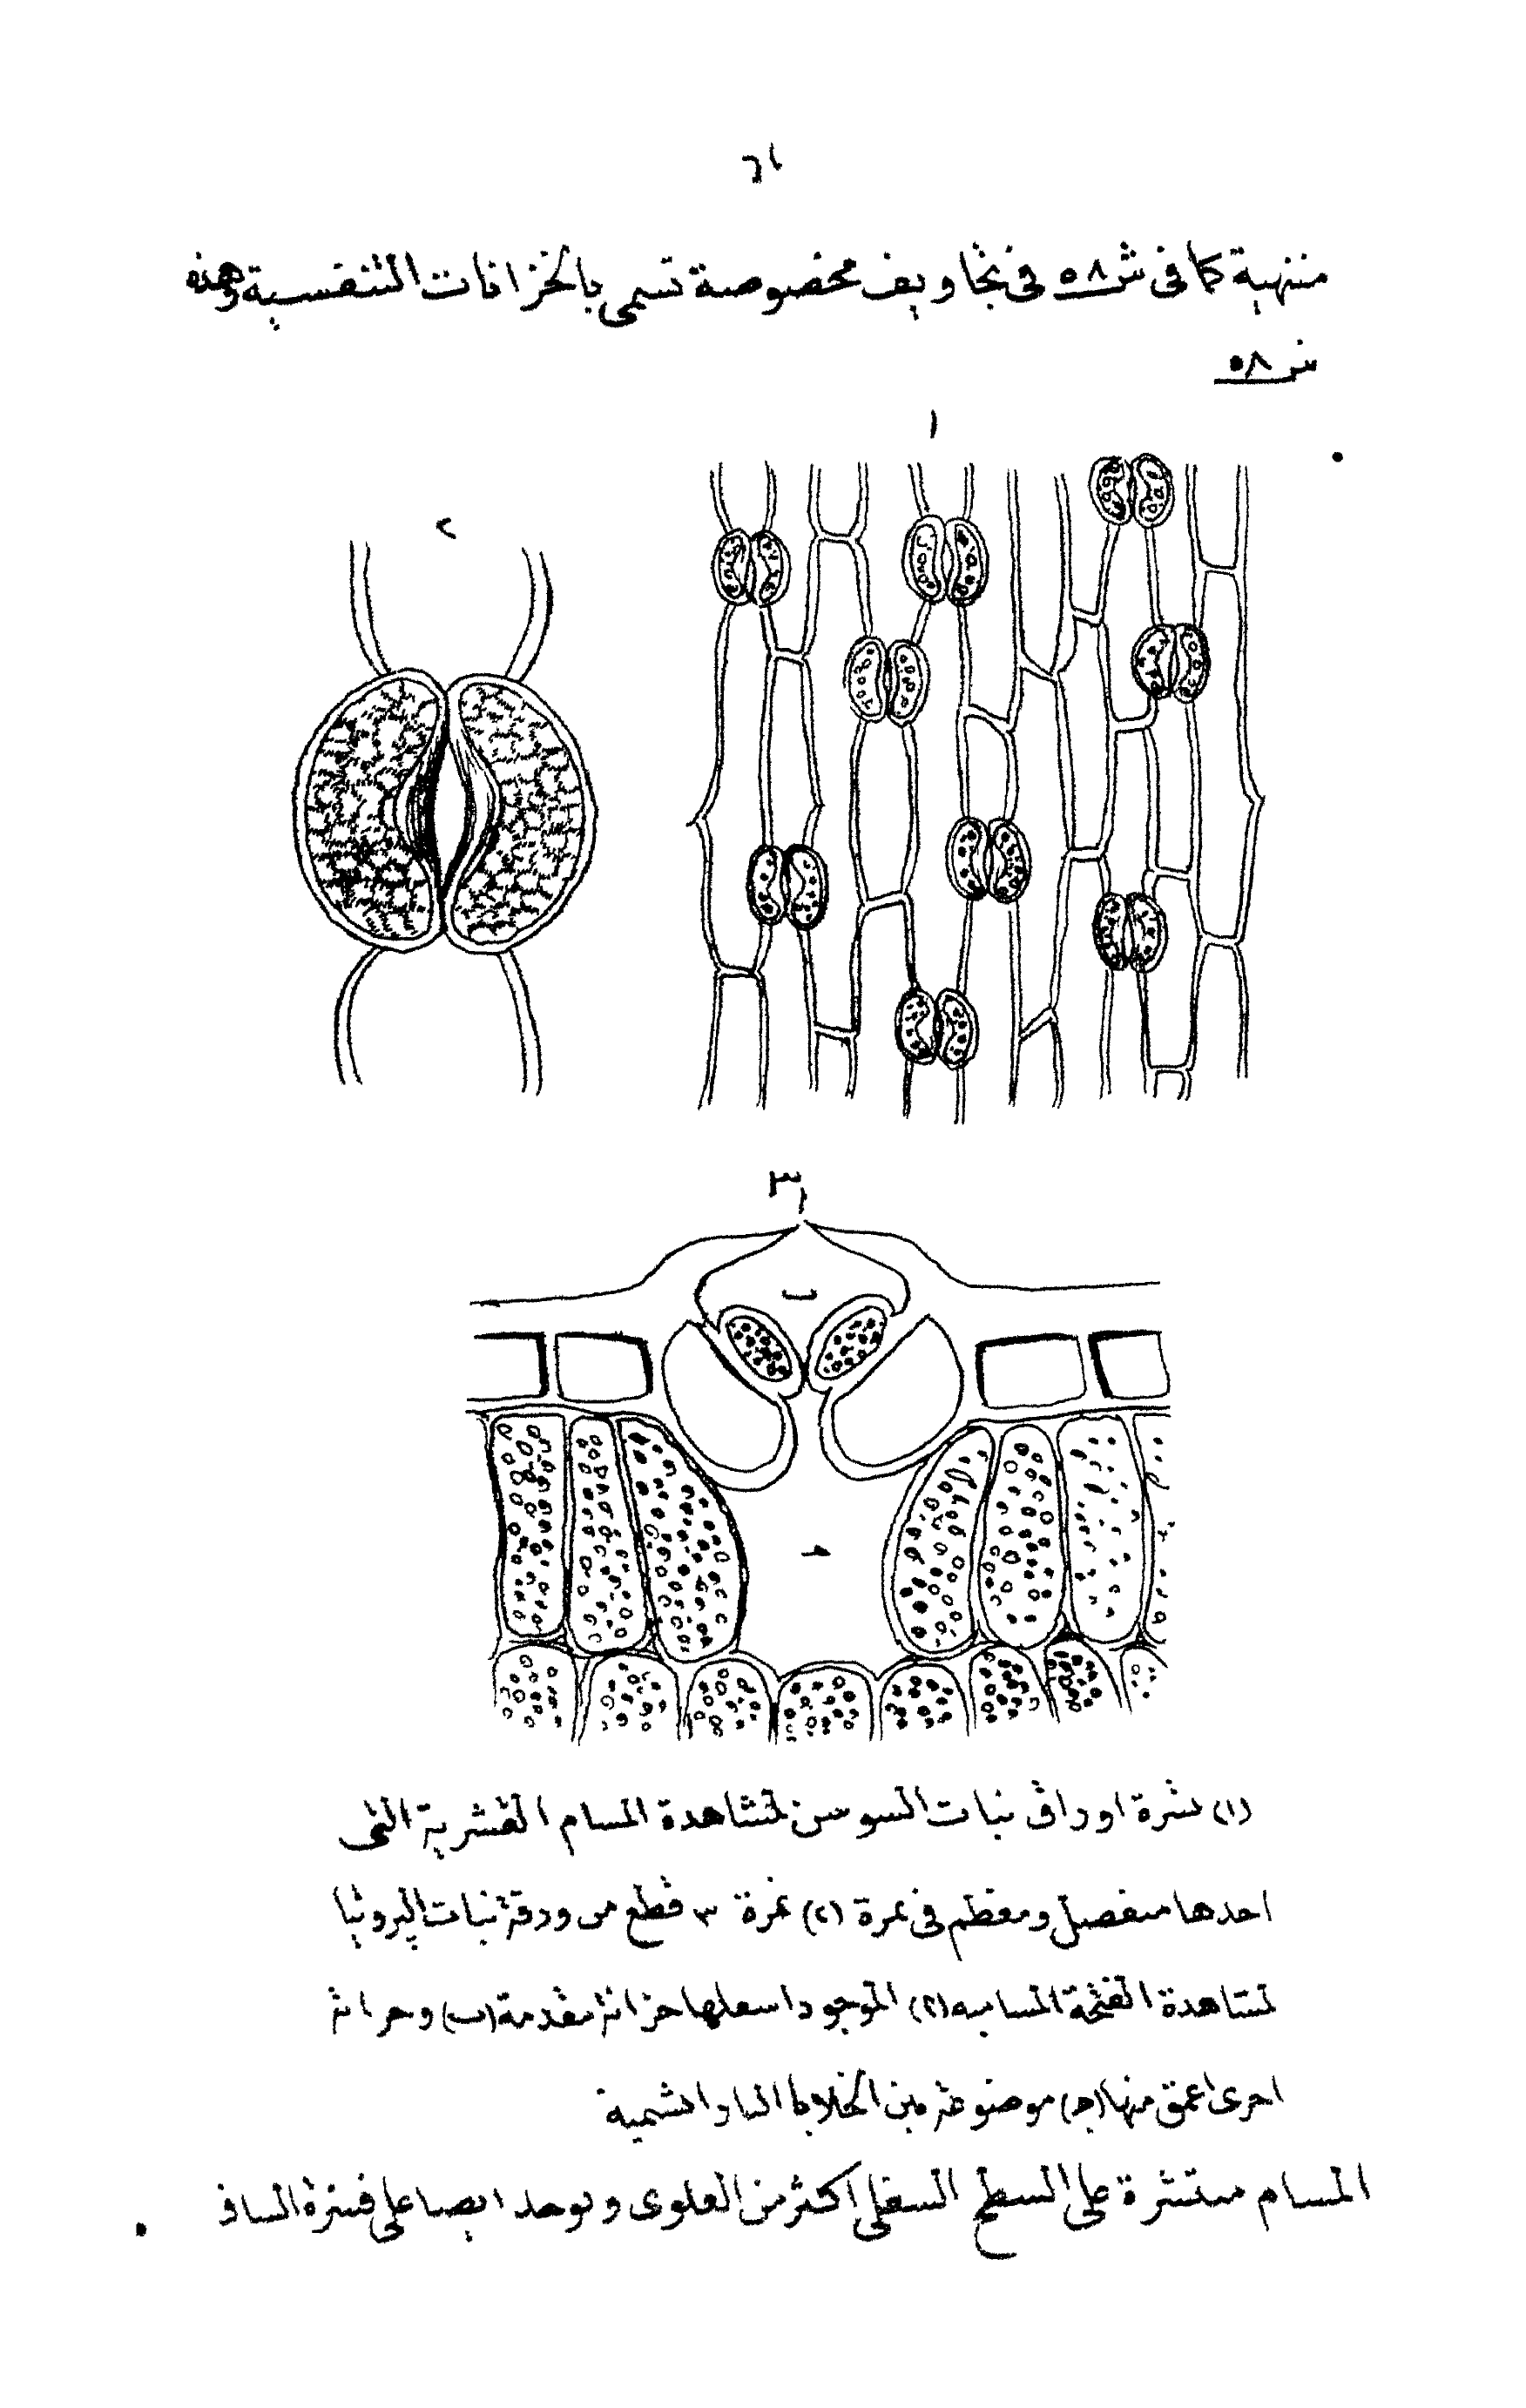 ٦١
منتهية كما فى ش ٥٨ فى تجاويف مخصوصة تسمى بالخزانات التنفسية وهذه
ش ٥٨
١
٢
٣
ا
ب
ج
(١) بشرة اوراق نبات السوسن لمشاهدة المسام القشرية التى
احدها منفصل ومعظم فى نمرة (٢) نمرة ٣ قطع من ورقة نبات البروتيا
لمشاهدة الفتحة المساميه (٢) الموجود اسفلها خزانة مقدمة (ب) وخزانة
اخرى اعمق منها (ج) موضوعة بين الخلايا
المسام منتشرة على السطح السفلى اكثر من العلوى ويوجد ايضا على قشرة الساق